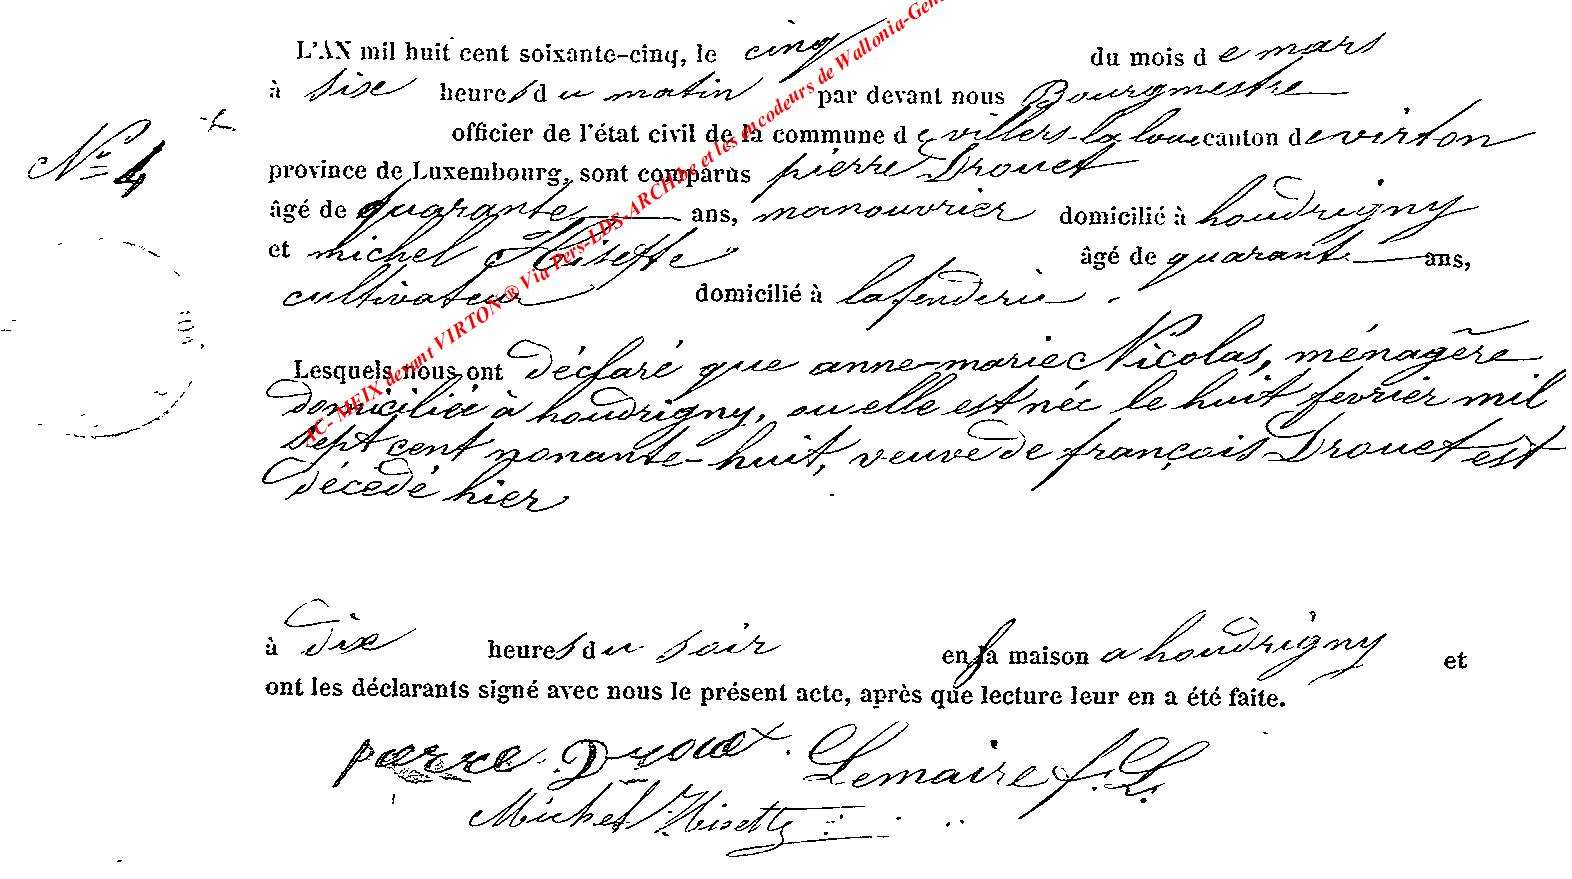 L'AN mil huit cent soixante-cinq, le cinq du mois de mars
à six heures du matin par devant nous Bourgmestre
officier de l'état civil de la commune de villers-la loue canton de virton
N° 4
province de Luxembourg, sont comparus pierre Drouet
âgé de quarante ans, manouvrier domicilié à houdrigny
et michel Hisette âgé de quarante ans,
cultivateur domicilié à lafenderie.
Lesquels nous ont déclaré que anne-marie Nicolas, ménagère
domiciliée à houdrigny, ou elle est née le huit fevrier mil
sept cent nonante-huit, veuve de françois Drouet est
décédé hier
à dix heures du soir en sa maison a houdrigny et
ont les déclarants signé avec nous le présent acte, après que lecture leur en a été faite.
pierre Drouet. Lemaire f. L.
Michel Hisette
AC- MEIX devant VIRTON ® Via Pers-LDS-ARCH.be et les encodeurs de Wallonia-Gen